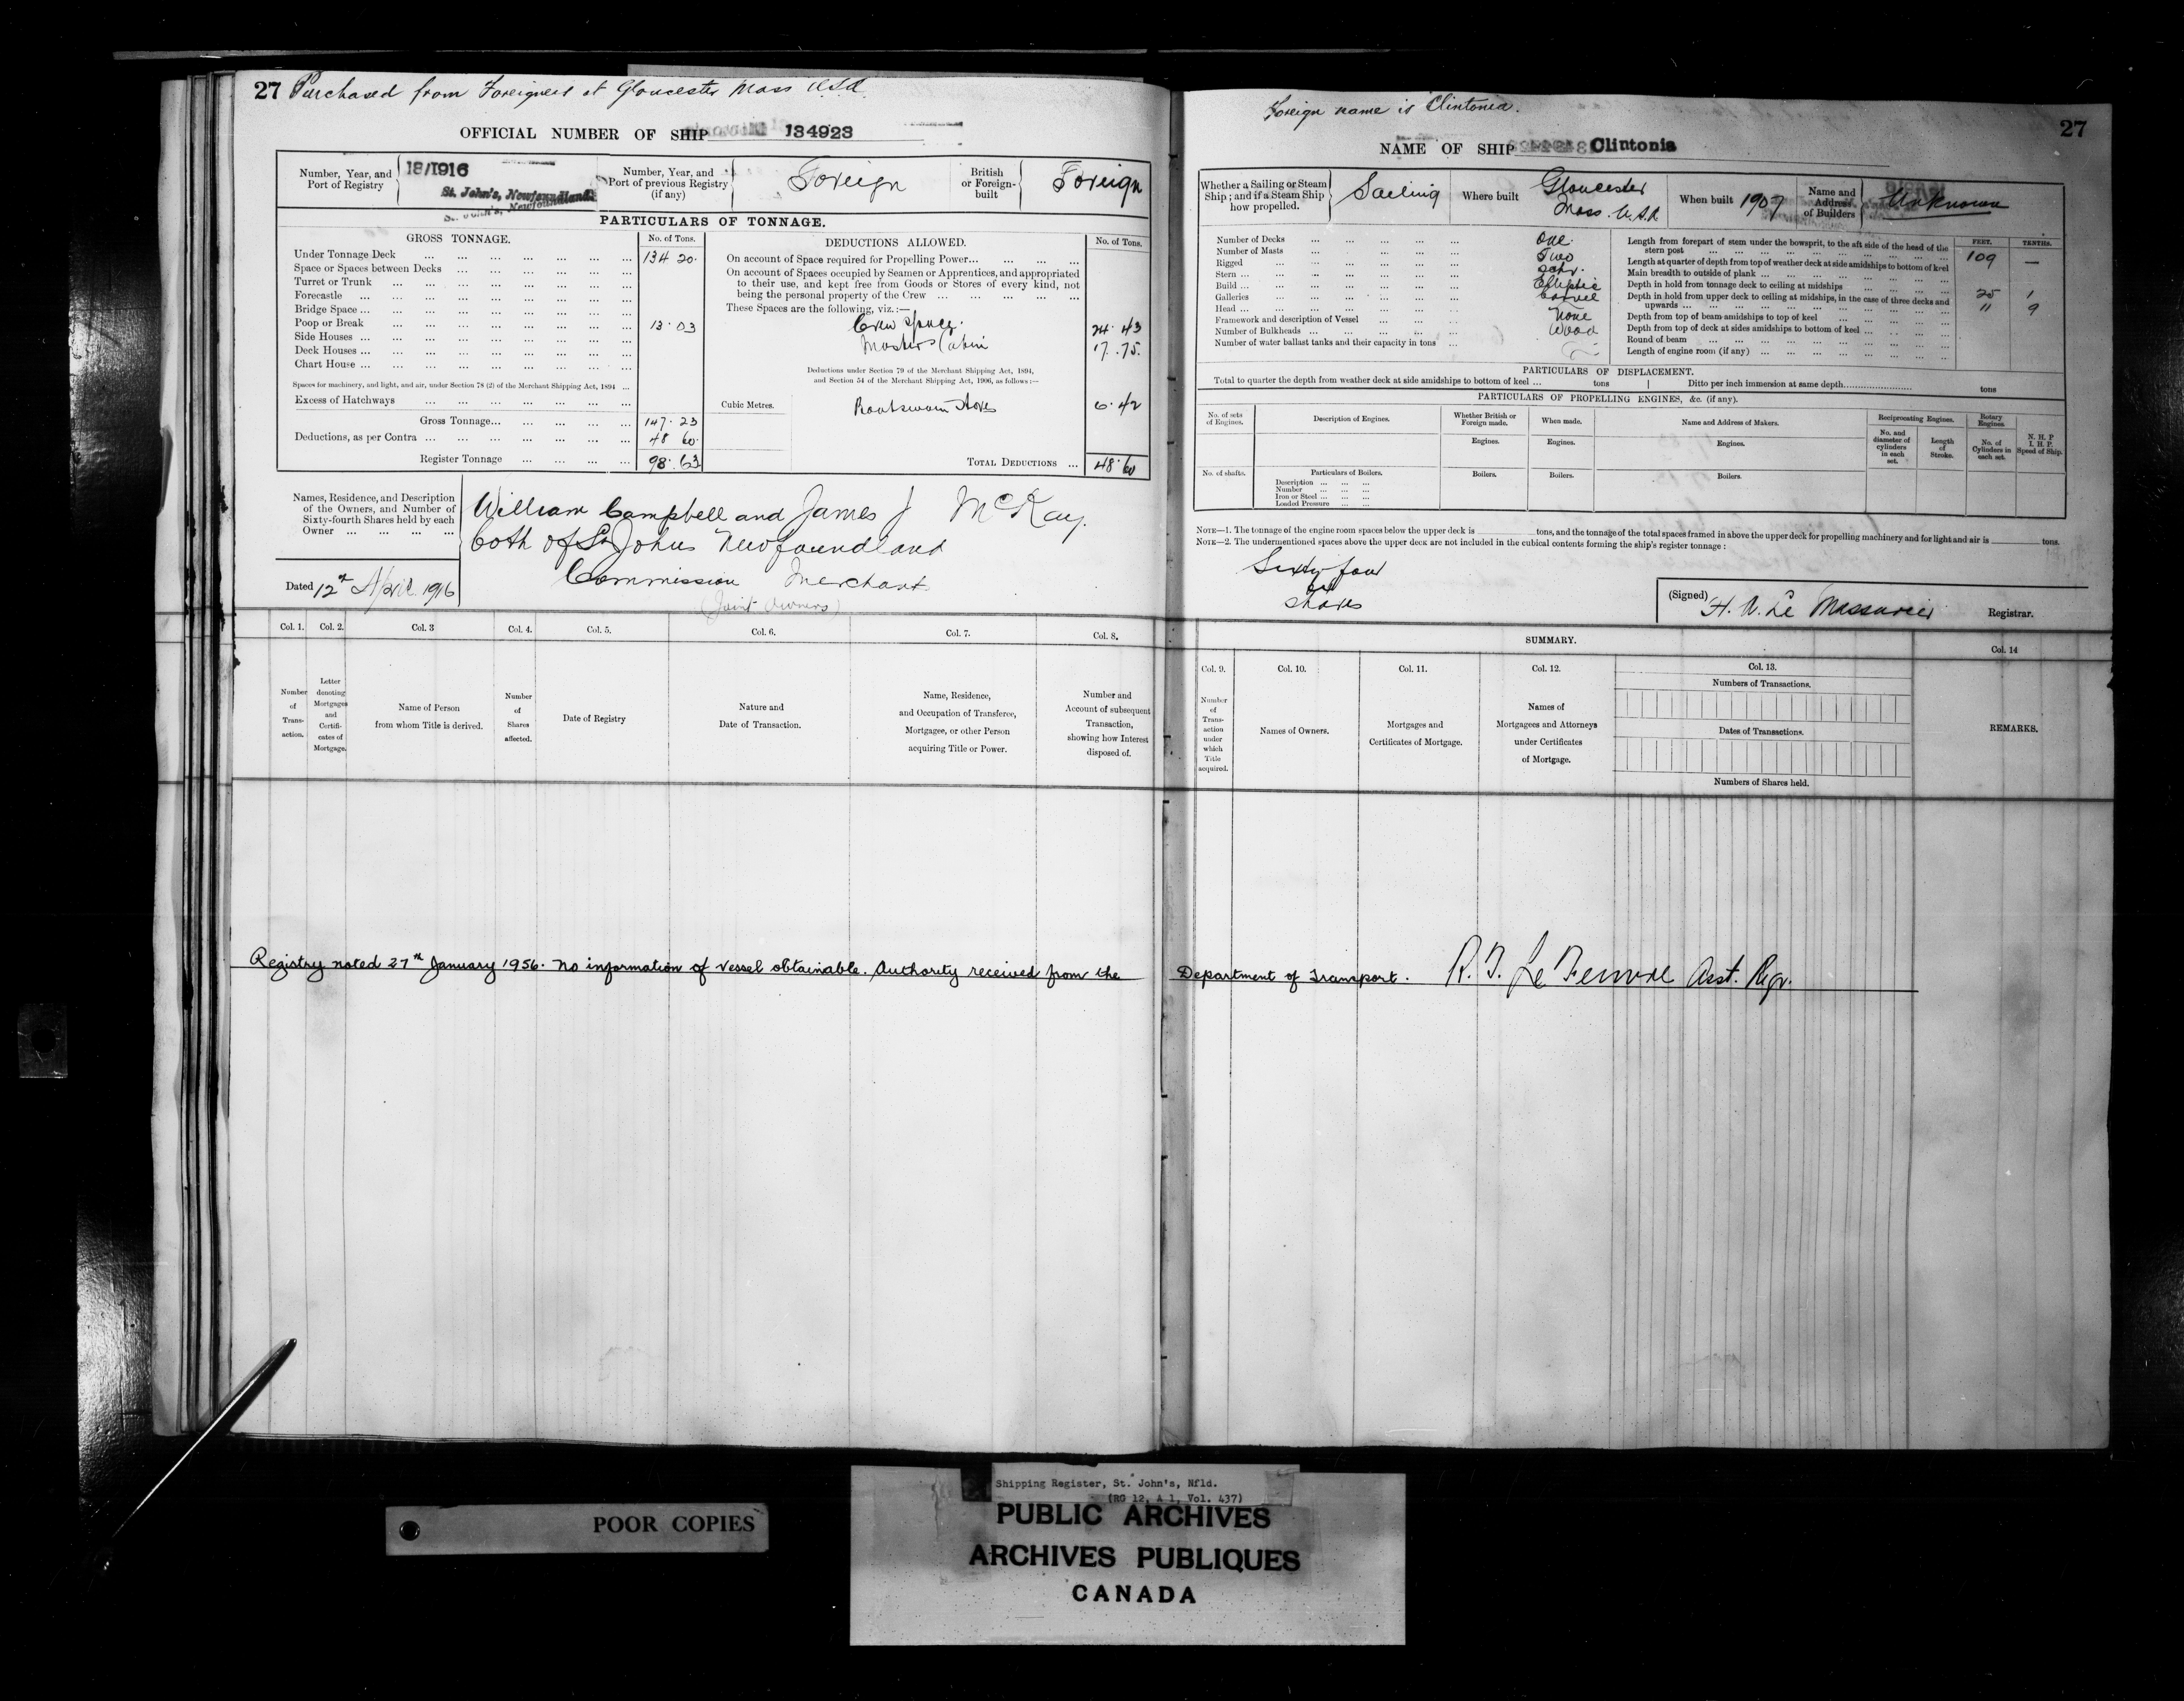 27 Purchased from Foreigners at Gloucester Mass USA
OFFICIAL NUMBER OF SHIP 134923
Number, Year, and Port of Registry 18/1916 St. John's, Newfoundland.
St. John's, Newfoundland.
Number, Year, and Port of previous Registry (if any) Foreign
British or Foreign-built Foreign
PARTICULARS OF TONNAGE.
GROSS TONNAGE. No. of Tons.
Under Tonnage Deck ... 134 20.
Space or Spaces between Decks ...
Turret or Trunk ...
Forecastle ...
Bridge Space ...
Poop or Break ... 13.03
Side Houses ...
Deck Houses ...
Chart House ...
Spaces for machinery, and light, and air, under Section 78 (2) of the Merchant Shipping Act, 1894 ...
Excess of Hatchways ...
Gross Tonnage... 147.23
Deductions, as per Contra ... 48 60.
Register Tonnage ... 98.63
DEDUCTIONS ALLOWED. No. of Tons.
On account of Space required for Propelling Power...
On account of Spaces occupied by Seamen or Apprentices, and appropriated
to their use, and kept free from Goods or Stores of every kind, not
being the personal property of the Crew ...
These Spaces are the following, viz.:—
Crew space. 24.43
Masters Cabin 17.75.
Deductions under Section 79 of the Merchant Shipping Act, 1894,
and Section 54 of the Merchant Shipping Act, 1906, as follows:—
Cubic Metres. Boatswain Stores 6.42
TOTAL DEDUCTIONS ... 48.60
Names, Residence, and Description
of the Owners, and Number of
Sixty-fourth Shares held by each
Owner ...
William Campbell and James J McKay.
both of St Johns Newfoundland
Commission Merchants
(Joint Owners)
Dated 12th April 1916
Col. 1. Col. 2. Col. 3 Col. 4. Col. 5. Col. 6. Col. 7. Col. 8.
Number of Transaction.
Letter denoting Mortgages and Certificates of Mortgage.
Name of Person from whom Title is derived.
Number of Shares affected.
Date of Registry
Nature and Date of Transaction.
Name, Residence, and Occupation of Transferee, Mortgagee, or other Person acquiring Title or Power.
Number and Account of subsequent Transaction, showing how Interest disposed of.
Foreign name is Clintonia.
27
NAME OF SHIP Clintonia
Whether a Sailing or Steam Ship; and if a Steam Ship how propelled. Sailing
Where built Gloucester Mass. U.S.A
When built 1907
Name and Address of Builders Unknown
Number of Decks ... One.
Number of Masts ... Two
Rigged ... Schr.
Stern ... Elliptic
Build ... Carvel
Galleries ...
Head ... None
Framework and description of Vessel ... Wood
Number of Bulkheads ...
Number of water ballast tanks and their capacity in tons ...
FEET. TENTHS.
Length from forepart of stem under the bowsprit, to the aft side of the head of the
stern post ... 109 —
Length at quarter of depth from top of weather deck at side amidships to bottom of keel
Main breadth to outside of plank ... 25 1
Depth in hold from tonnage deck to ceiling at midships ... 11 9
Depth in hold from upper deck to ceiling at midships, in the case of three decks and
upwards ...
Depth from top of beam amidships to top of keel ...
Depth from top of deck at sides amidships to bottom of keel ...
Round of beam ...
Length of engine room (if any) ...
PARTICULARS OF DISPLACEMENT.
Total to quarter the depth from weather deck at side amidships to bottom of keel ... tons | Ditto per inch immersion at same depth... tons
PARTICULARS OF PROPELLING ENGINES, &c. (if any).
No. of sets of Engines. Description of Engines. Whether British or Foreign made. When made. Name and Address of Makers. Reciprocating Engines. Rotary Engines.
Engines. Engines. Engines. No. and diameter of cylinders in each set. Length of Stroke. No. of Cylinders in each set. N. H. P I. H. P. Speed of Ship.
No. of shafts. Particulars of Boilers. Boilers. Boilers. Boilers.
Description ...
Number ...
Iron or Steel ...
Loaded Pressure ...
NOTE—1. The tonnage of the engine room spaces below the upper deck is tons, and the tonnage of the total spaces framed in above the upper deck for propelling machinery and for light and air is tons.
NOTE—2. The undermentioned spaces above the upper deck are not included in the cubical contents forming the ship's register tonnage:
Sixty-four
shares
(Signed) H. W. Le Messurier Registrar.
SUMMARY.
Col. 9. Col. 10. Col. 11. Col. 12. Col. 13. Col. 14
Number of Transaction under which Title acquired.
Names of Owners.
Mortgages and Certificates of Mortgage.
Names of Mortgagees and Attorneys under Certificates of Mortgage.
Numbers of Transactions.
Dates of Transactions.
Numbers of Shares held.
REMARKS.
Registry noted 27th January 1956. No information of vessel obtainable. Authority received from the Department of Transport. Asst. Rgr.
Shipping Register, St. John's, Nfld.
(RG 12, A 1, Vol. 437)
POOR COPIES
PUBLIC ARCHIVES
ARCHIVES PUBLIQUES
CANADA